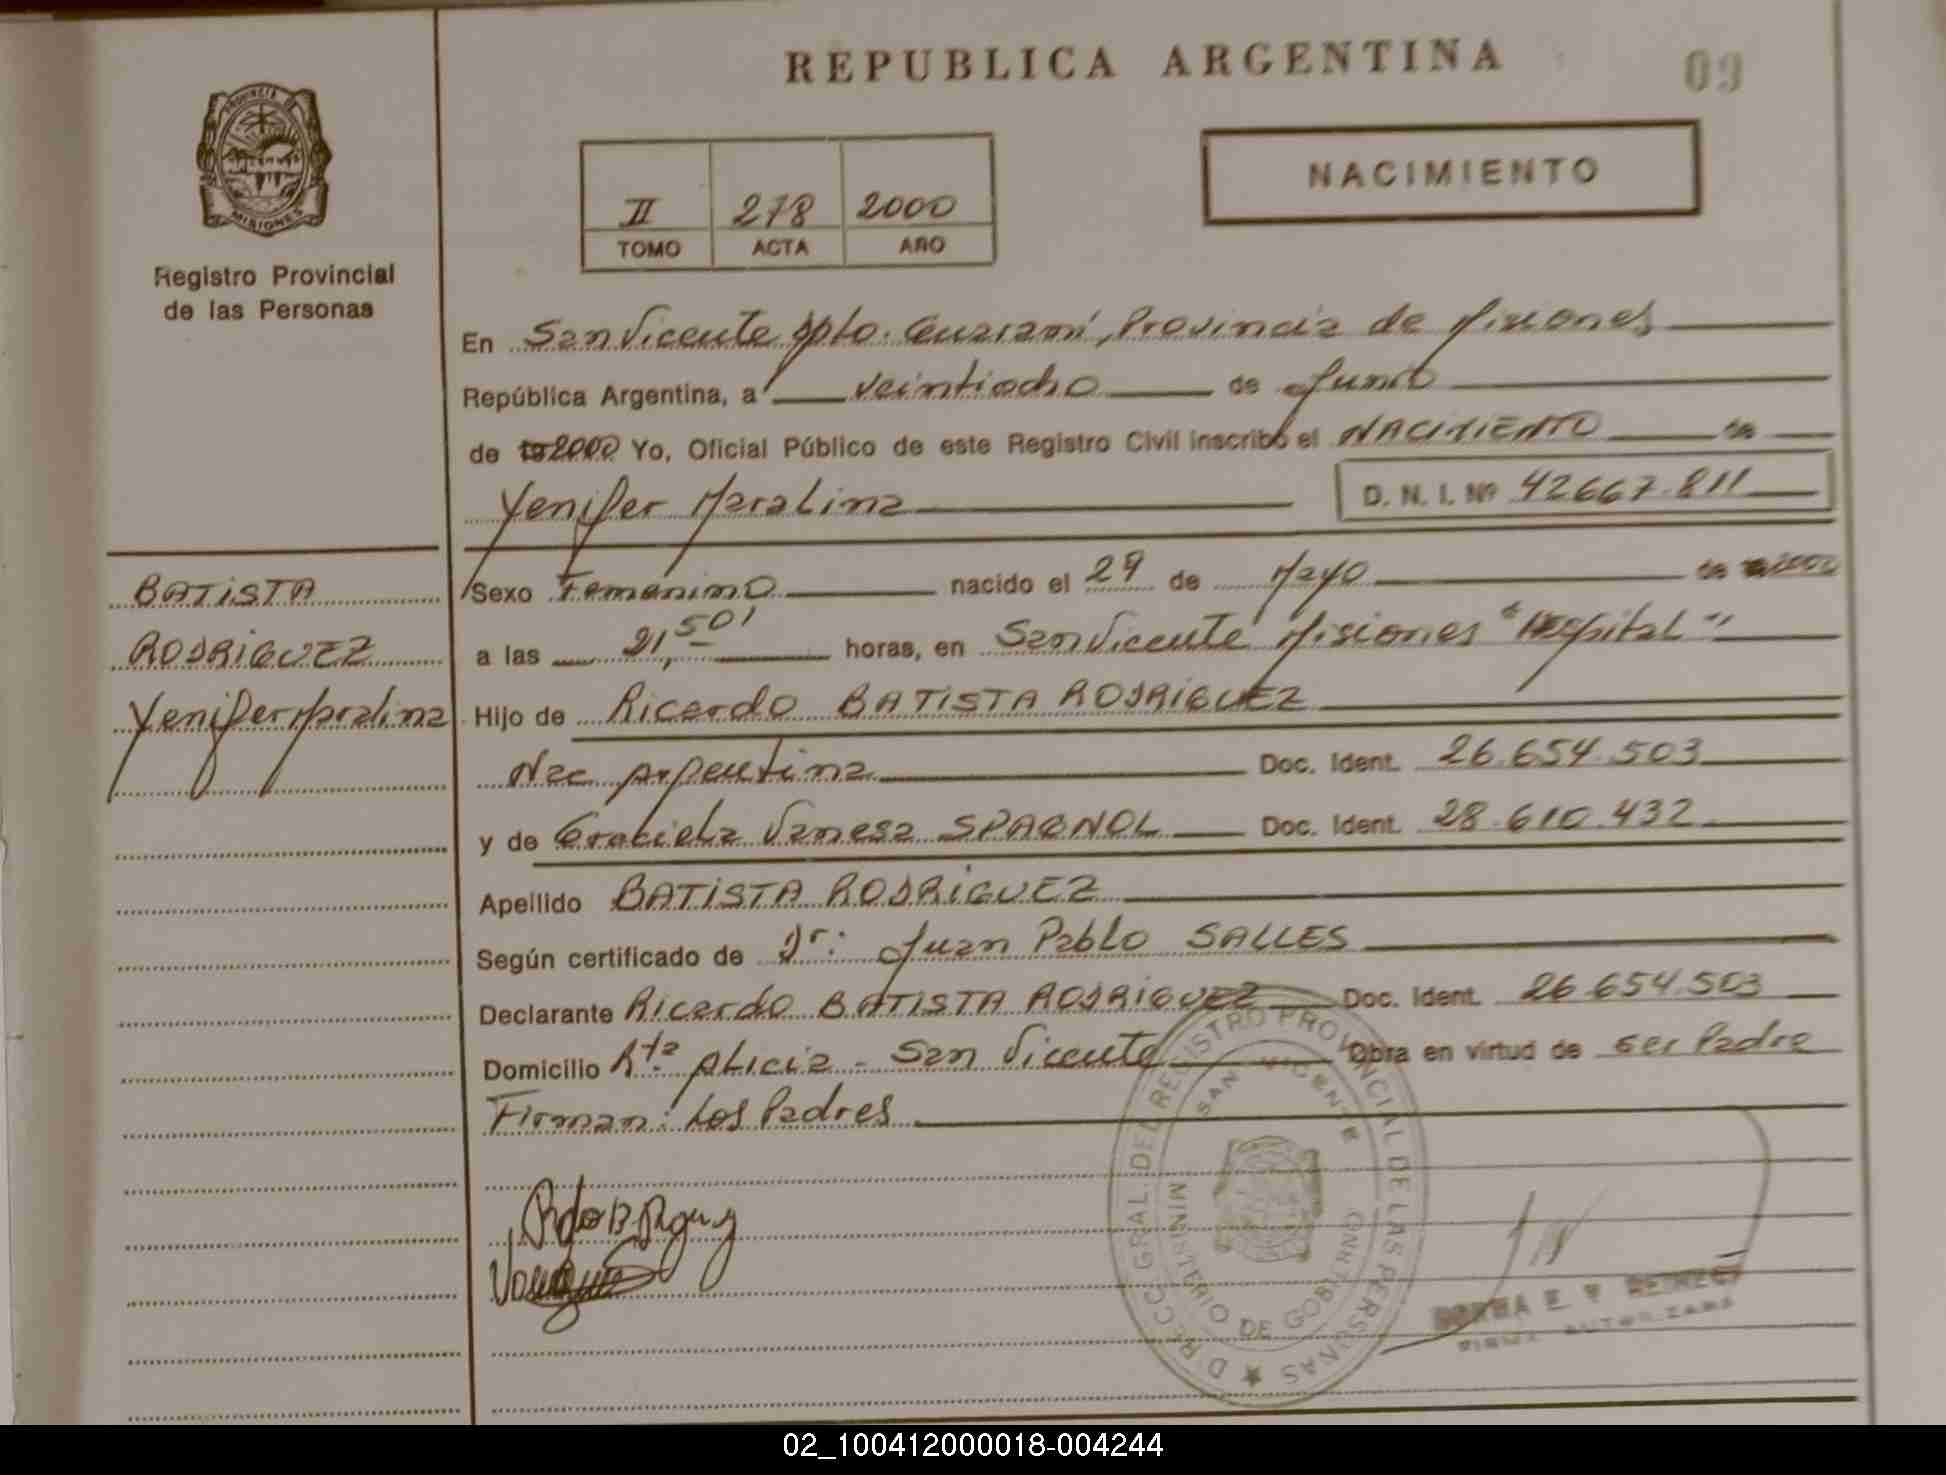 REPUBLICA ARGENTINA
09
PROVINCIA DE
MISIONES
Registro Provincial
de las Personas
NACIMIENTO
II 278 2000
TOMO ACTA AÑO
En San Vicente Dpto. Guaraní, Provincia de Misiones
República Argentina, a veintiocho de Junio
de 2000 Yo, Oficial Público de este Registro Civil inscribo el NACIMIENTO de
Yenifer Maralina D. N. I. Nº 42667.811
BATISTA
RODRIGUEZ
Yenifer Maralina
Sexo Femenino nacido el 29 de Mayo de 2000
a las 21,50' horas, en San Vicente Misiones "Hospital"
Hijo de Ricardo BATISTA RODRIGUEZ
Nac Argentina Doc. Ident. 26.654.503
y de Graciela Vanesa SPAGNOL Doc. Ident. 28.610.432
Apellido BATISTA RODRIGUEZ
Según certificado de Dr: Juan Pablo SALLES
Declarante Ricardo BATISTA RODRIGUEZ Doc. Ident. 26.654.503
Domicilio Rta Alicia - San Vicente Obra en virtud de ser Padre
Firman: Los Padres
DIRECC. GRAL. DEL REGISTRO PROVINCIAL DE LAS PERSONAS
SAN VICENTE
MINISTERIO DE GOBIERNO
02_100412000018-004244